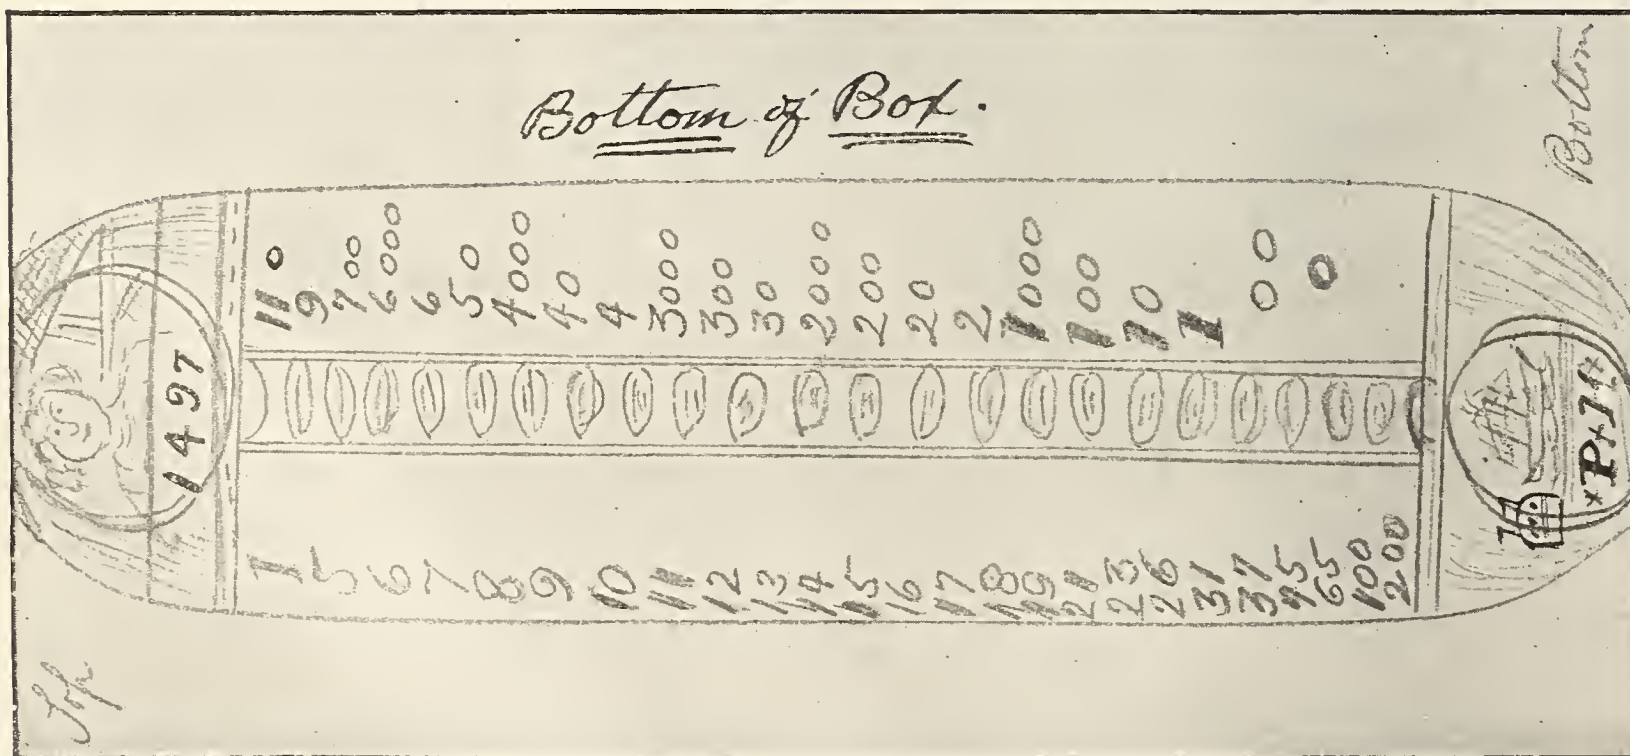 Bottom of Box.
Bottom
110
9
700
6000
6
50
4000
40
4
3000
300
30
2000
200
20
2
1000
100
10
1
00
0
1497
1
5
6
7
8
9
10
11
12
13
14
15
16
17
18
19
21
23
26
31
37
65
100
200
Top